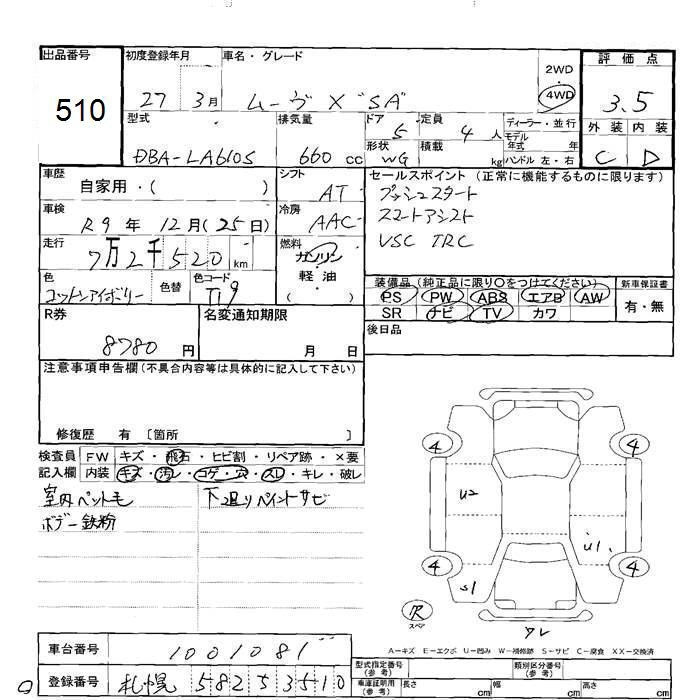 出品番号 初度登録年月 車名・グレード 評価点
510 27 3月 ムーヴ X "SA" 2WD・4WD 3.5
型式 排気量 ドア 定員 ディーラー・並行 外装 内装
DBA-LA610S 660 cc 5 4人 モデル年式 年 C D
形状 WG 積載 kg ハンドル 左・右
車歴 自家用・( ) シフト AT セールスポイント (正常に機能するものに限ります)
車検 R9年 12月(25日) 冷房 AAC プッシュスタート
スマートアシスト
走行 7万2千520km 燃料 ガソリン・軽油 ( ) VSC TRC
色 コットンアイボリー 色替 色コード T19 装備品 (純正品に限り○をつけてください) 新車保証書
PS PW ABS エアB AW 有・無
SR ナビ TV カワ
R券 8780円 名変通知期限 月 日 後日品
注意事項申告欄 (不具合内容等は具体的に記入して下さい)
修復歴 有 〔箇所 〕
検査員記入欄 FW キズ・飛石・ヒビ割・リペア跡・×要
内装 キズ・汚レ・コゲ・穴・スレ・キレ・破レ
室内ペット毛 下廻りペイントサビ
ボデー鉄粉
4 4
U2
U1
4 4
S1
スペア
ワレ
A−キズ E−エクボ U−凹み W−補修跡 S−サビ C−腐食 XX−交換済
車台番号 1001081
型式指定番号 (参考) 類別区分番号 (参考)
登録番号 札幌 582 5 3510
車庫証明用 (参考) 長さ cm 幅 cm 高さ cm